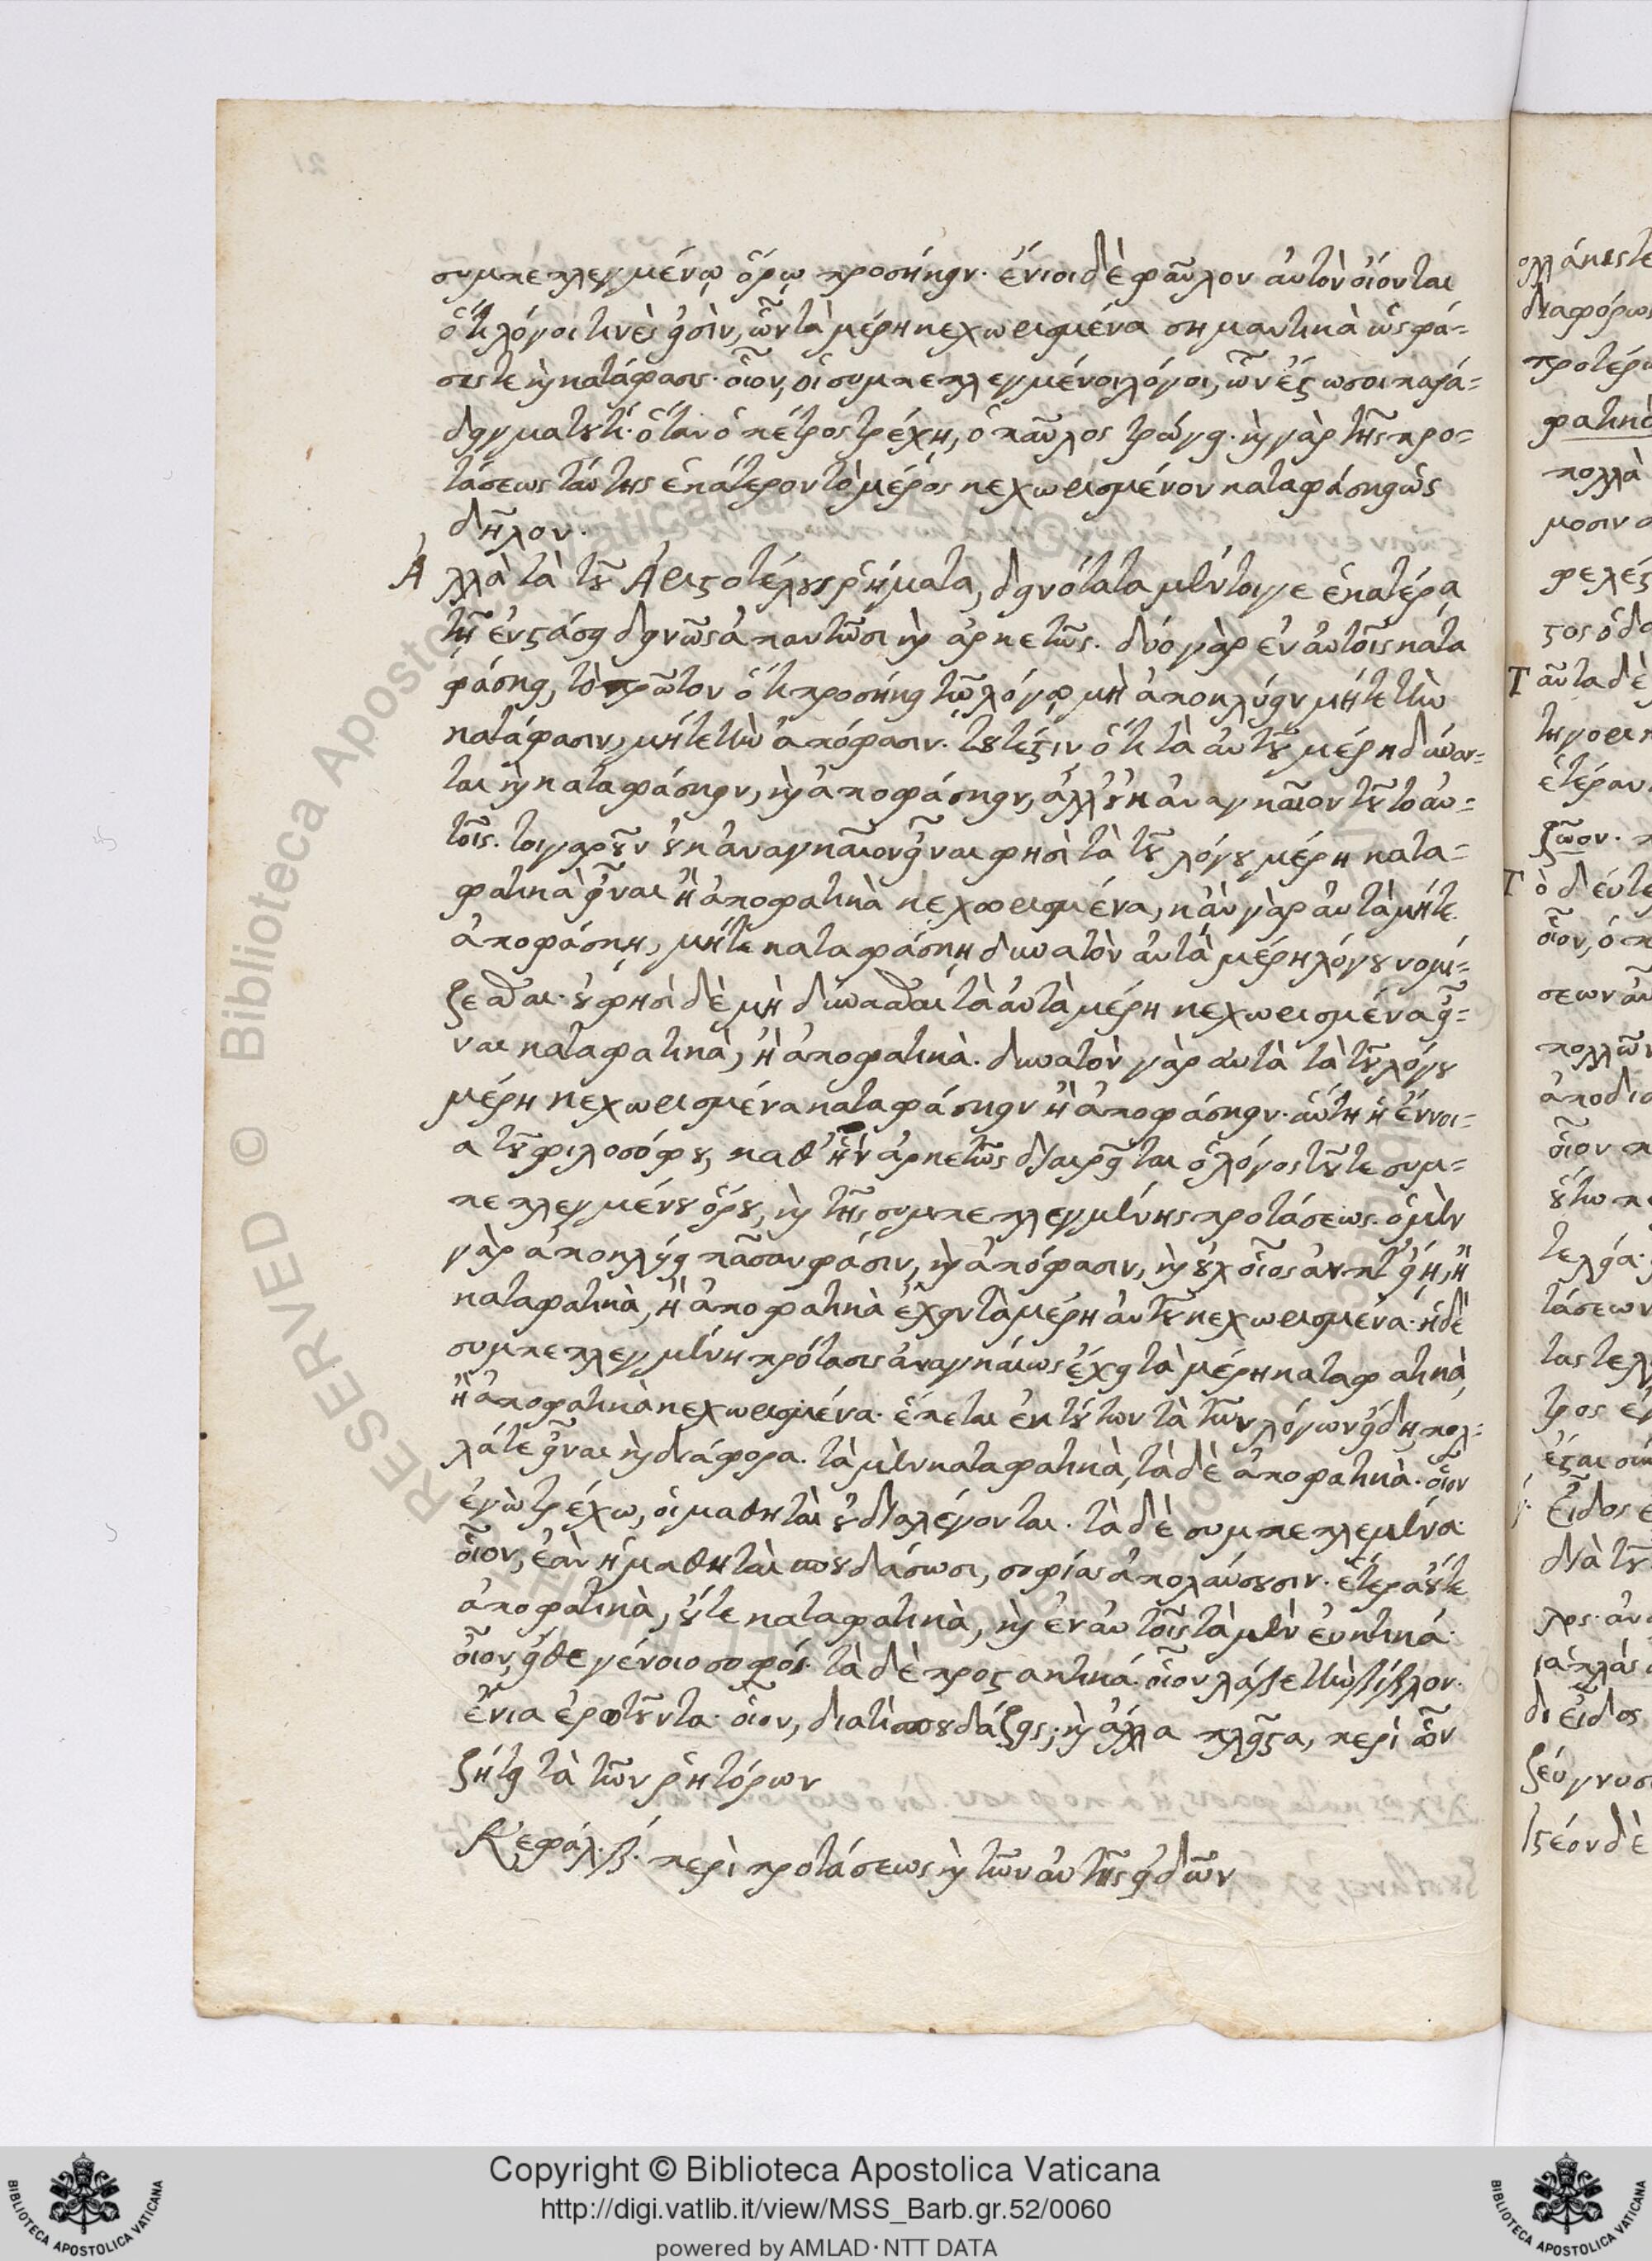 συμπεπλεγμένῳ ὅρῳ προσήκειν. ἔνιοι δὲ φαῦλον αὐτὸν οἴονται
ὅτι λόγοι τινὲς εἰσὶν, ὧν τὰ μέρη κεχωρισμένα σημαντικὰ ὡς φά-
σις τε καὶ κατάφασις. οἷον, οἱ συμπεπλεγμένοι λόγοι, ὧν ἔξωσοι παρά-
δειγμα τουτί. ὅταν ὁ πέτρος τρέχῃ, ὁ παῦλος τρώγει. καὶ γὰρ τῆς προ-
τάσεως ταύτης ἑκάτερον τὸ μέρος κεχωρισμένον καταφάσκει ὡς
δῆλον.
Ἀλλὰ τὰ τοῦ Ἀριστοτέλους ῥήματα, δεινότατα μέντοιγε ἑκατέρᾳ
τῇ ἐνστάσει δεινῶς ἀπαντῶσι καὶ ἀρκετῶς. δύο γὰρ ἐν αὐτοῖς κατα
φάσκει, τὸ πρῶτον ὅτι προσήκει τῷ λόγῳ μὴ ἀποκλύειν μήτε τὴν
κατάφασιν, μήτε τὴν ἀπόφασιν. τουτέστιν ὅτι τὰ αὐτοῦ μέρη δύναν-
ται καὶ καταφάσκειν, καὶ ἀποφάσκειν, ἀλλ' οὐκ ἀναγκαῖον τοῦτο αὐ-
τοῖς. τοιγαροῦν οὐκ ἀναγκαῖον εἶναι φησὶ τὰ τοῦ λόγου μέρη κατα-
φατικὰ εἶναι ἢ ἀποφατικὰ κεχωρισμένα, κἂν γὰρ αὐτὰ μήτε
ἀποφάσκῃ, μήτε καταφάσκῃ δυνατὸν αὐτὰ μέρη λόγου νομί-
ζεσθαι. οὐ φησὶ δὲ μὴ δύνασθαι τὰ αὐτὰ μέρη κεχωρισμένα εἶ-
ναι καταφατικὰ, ἢ ἀποφατικὰ. δυνατὸν γὰρ αὐτὰ τὰ τοῦ λόγου
μέρη κεχωρισμένα καταφάσκειν ἢ ἀποφάσκειν. αὕτη ἡ ἔννοι-
α τοῦ φιλοσόφου, καθ' ἣν ἀρκετῶς διαιρεῖται ὁ λόγος τοῦ τε συμ-
πεπλεγμένου ὅρου, καὶ τῆς συμπεπλεγμένης προτάσεως. ὁ μὲν
γὰρ ἀποκλύει πᾶσαν φάσιν, καὶ ἀπόφασιν, καὶ οὐχ οἷος ἄν ποτ' εἴη, ἢ
καταφατικὰ, ἢ ἀποφατικὰ ἔχειν τὰ μέρη αὐτοῦ κεχωρισμένα. ἡ δὲ
συμπεπλεγμένη πρότασις ἀναγκαίως ἔχει τὰ μέρη καταφατικὰ
ἢ ἀποφατικὰ κεχωρισμένα. ἕπεται ἐκ τούτων τὰ τῶν λόγων εἴδη πολ-
λά τε εἶναι καὶ διάφορα. τὰ μὲν καταφατικὰ, τὰ δὲ ἀποφατικὰ. οἷον
ἐγὼ τρέχω, οἱ μαθηταὶ οὐ διαλέγονται. τὰ δὲ συμπεπλεμένα.
οἷον, ἐὰν ἡ μαθηταὶ σπουδάσωσι, σοφίας ἀπολαύσουσιν. ἕτερα οὔτε
ἀποφατικὰ, οὔτε καταφατικὰ, καὶ ἐν αὐτοῖς τὰ μὲν εὐκτικά.
οἷον, εἴθε γένοιο σοφός. τὰ δὲ προστακτικά. οἷον λάβε τὴν βίβλον.
ἔνια ἐρωτοῦντα. οἷον, διατί σπουδάζεις; καὶ ἄλλα πλεῖστα, περὶ ὧν
ζήτει τὰ τῶν ῥητόρων
Κεφάλ. β. περὶ προτάσεως καὶ τῶν αὐτῆς εἰδῶν
Copyright © Biblioteca Apostolica Vaticana
http://digi.vatlib.it/view/MSS_Barb.gr.52/0060
powered by AMLAD·NTT DATA